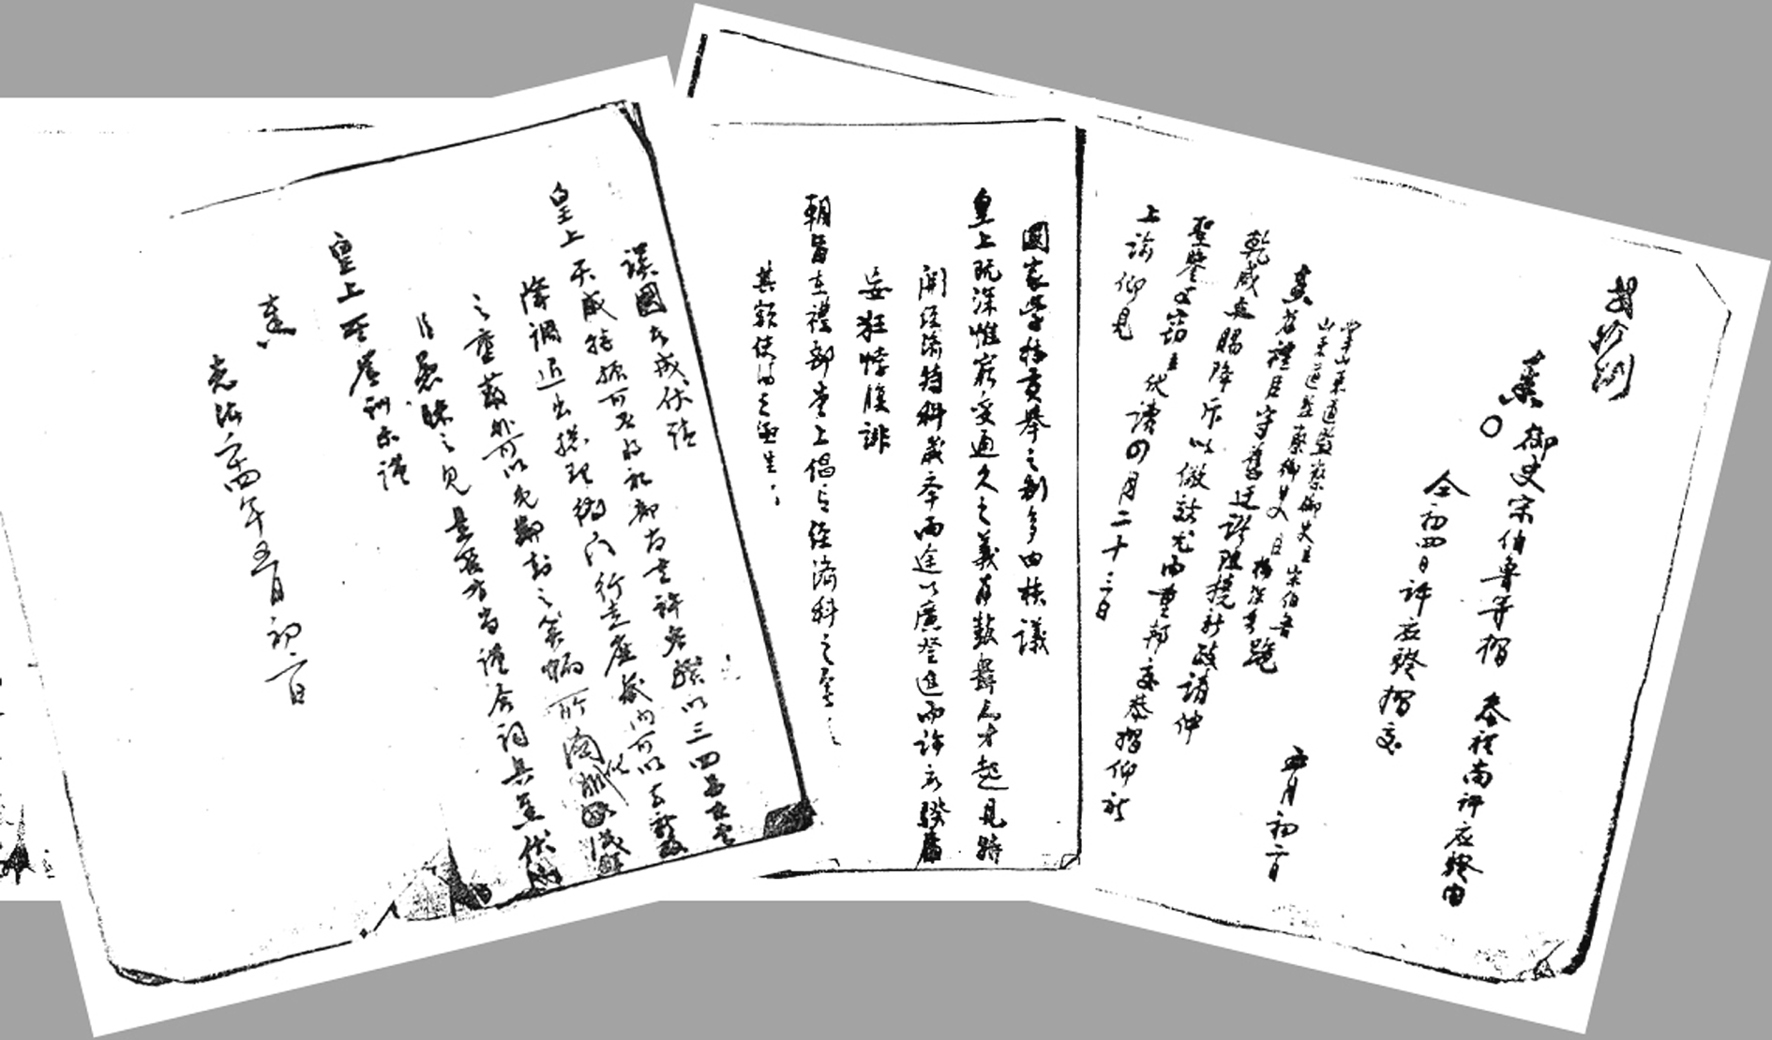 奏
御史宋伯魯等摺 參禮尚許應騤由
仝初四日許應騤摺交
五月初二日
掌山東道監察御史臣宋伯魯
山東道監察御史臣楊深秀跪
奏為禮臣守舊迂謬阻撓新政請伸
乾威立賜降斥以儆效尤而重邦交恭摺仰祈
聖鑒事竊臣伏讀四月二十三日
上諭仰見
國家學校貢舉之制多由核議
皇上既深惟窮變通久之義為鼓舞人才起見特
開經濟特科歲舉兩途以廣登進而許應騤庸
妄狂悖腹誹
朝旨在禮部堂上倡言經濟科之
其額使得之極
誤國
皇上天威特振可否將禮部尚書許應騤以三四品京堂
降調退出總理衙門行走庶幾內可以去新政
之壅蔽外可以免鄰封之笑
臣愚昧之見是否有當謹合詞具奏伏
皇上聖鑒訓示謹
奏
光緒二十四年五月初二日